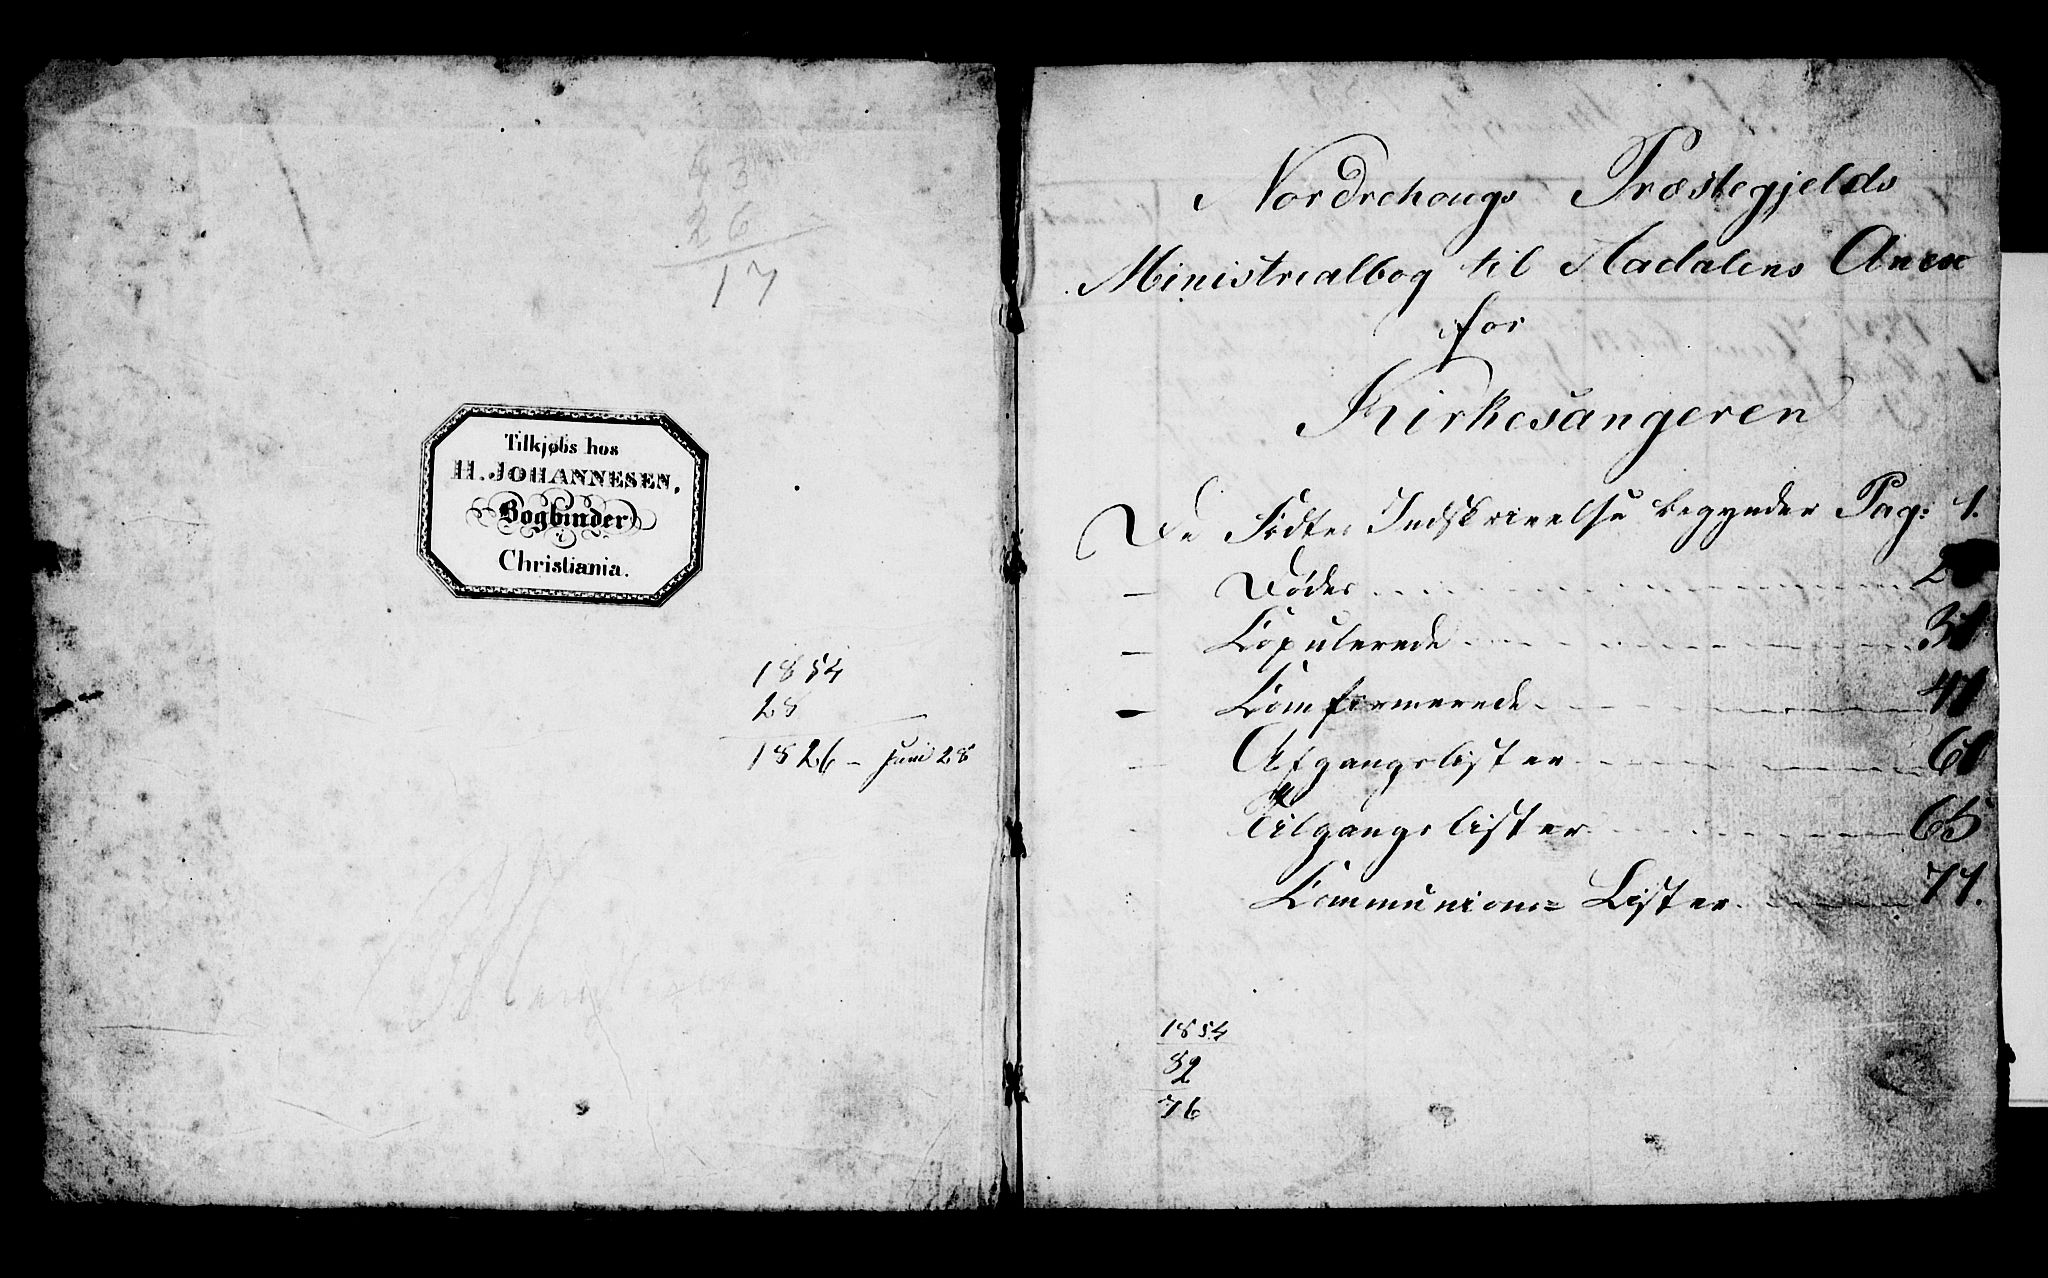 43
26
17
Tilkjøbs hos
H. JOHANNESEN,
Bogbinder
i
Christiania.
1854
28
1826 - Juni 28
Nordrehougs Præstegjelds
Ministrialbog til Aadalens Anex
for
Kirkesangeren
De Fødtes Indskrivelse begynder Pag: 1.
— Dødes
— Copulerede 31
— Comfirmerede 41
— Afgangslister 61
Tilgangslister 65
Communions= Lister 71.
1854
82
76